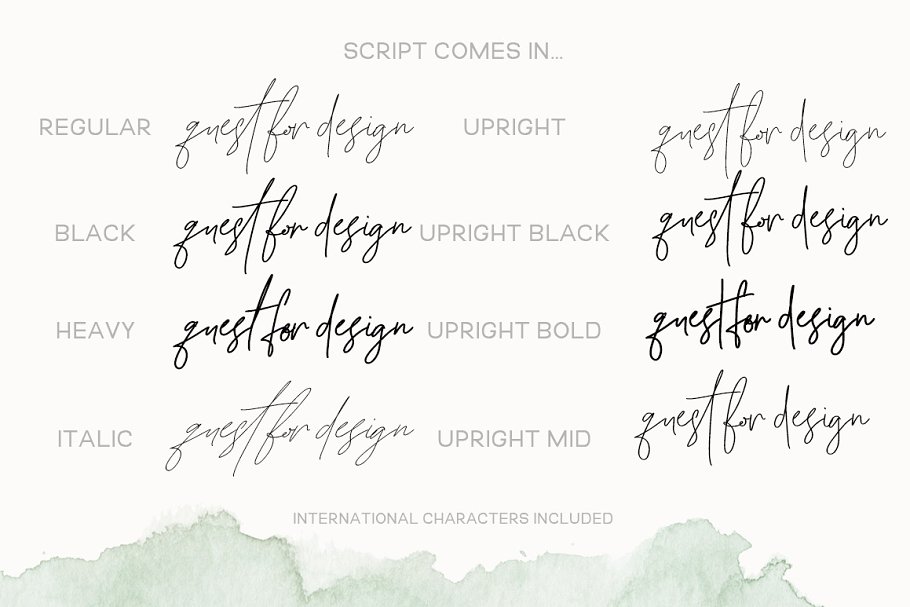 SCRIPT COMES IN...
REGULAR quest for design UPRIGHT quest for design
BLACK quest for design UPRIGHT BLACK quest for design
HEAVY quest for design UPRIGHT BOLD quest for design
ITALIC quest for design UPRIGHT MID quest for design
INTERNATIONAL CHARACTERS INCLUDED